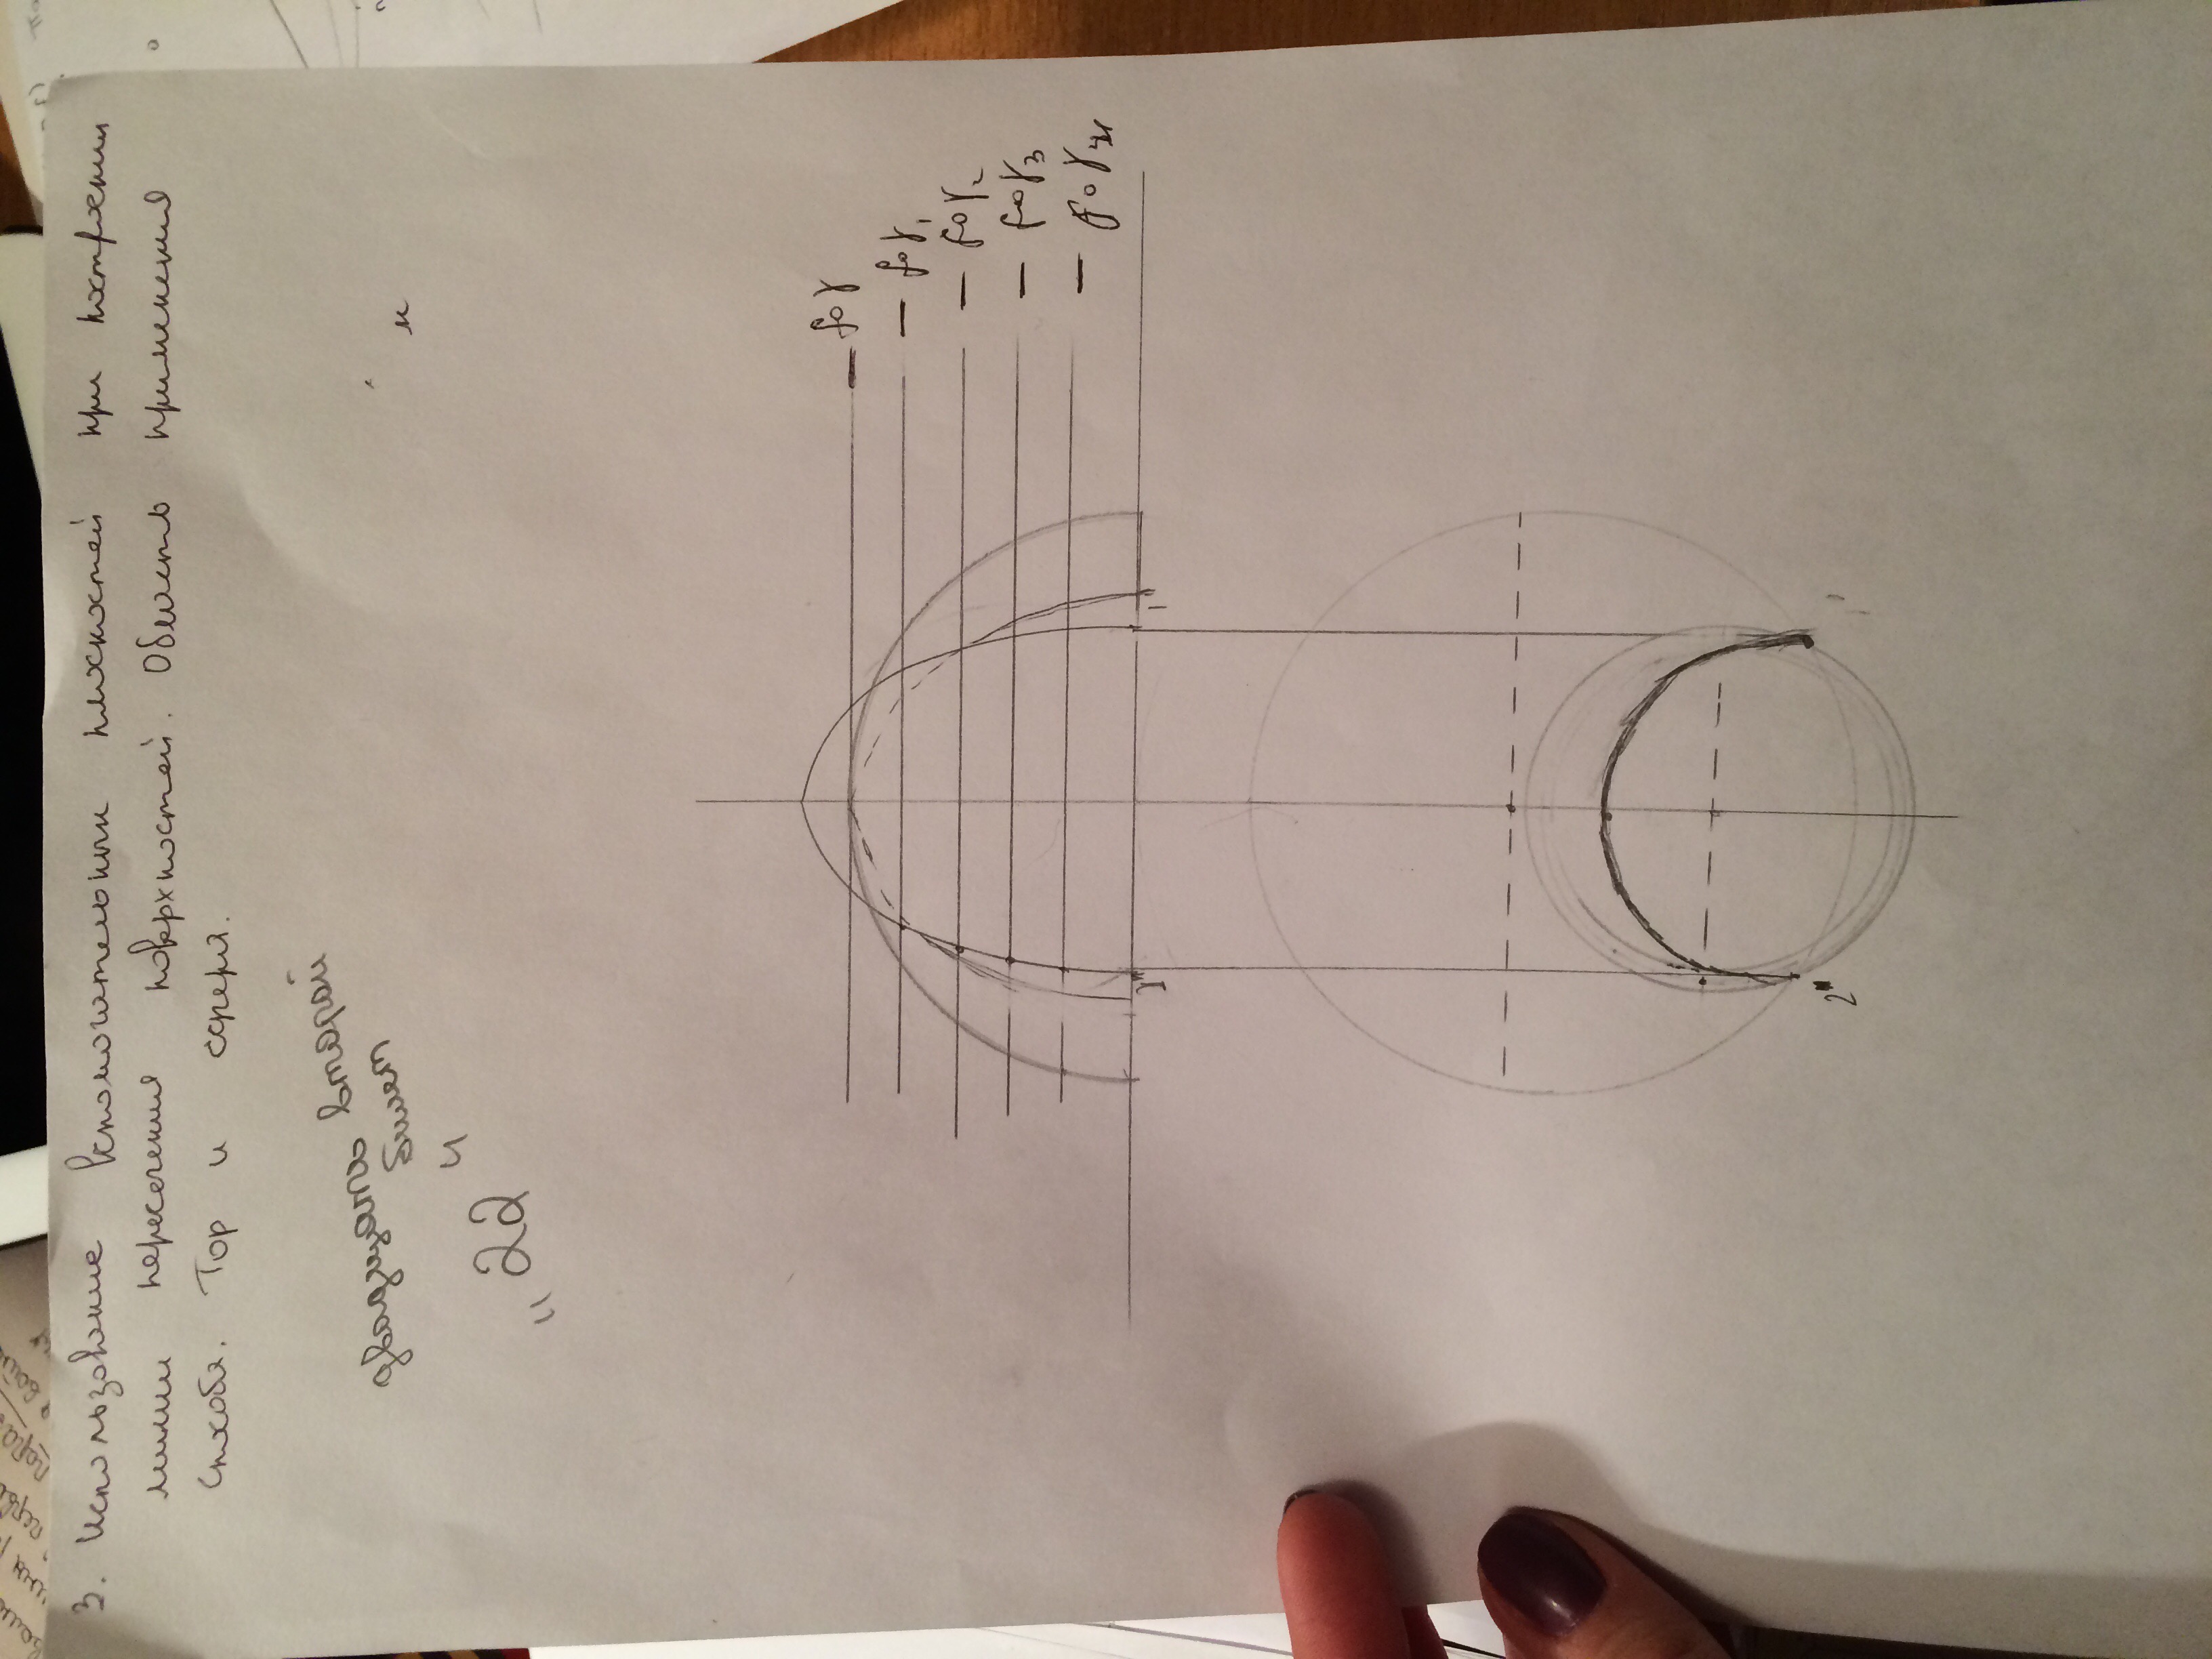 3. Использование вспомогательных плоскостей при построении
линии пересечения поверхностей. Область применения
способа. Тор и сфера.
двадцать второй
билет
"22"
и
f₀γ
f₀γ₁
f₀γ₂
f₀γ₃
f₀γ₄
1'
2"
1'